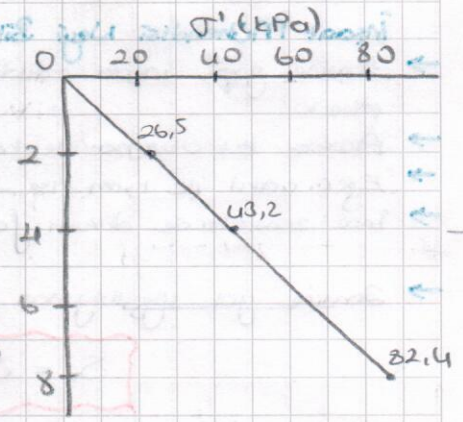 σ' (kPa)
0 20 40 60 80
26,5
2
43,2
4
6
82,4
8